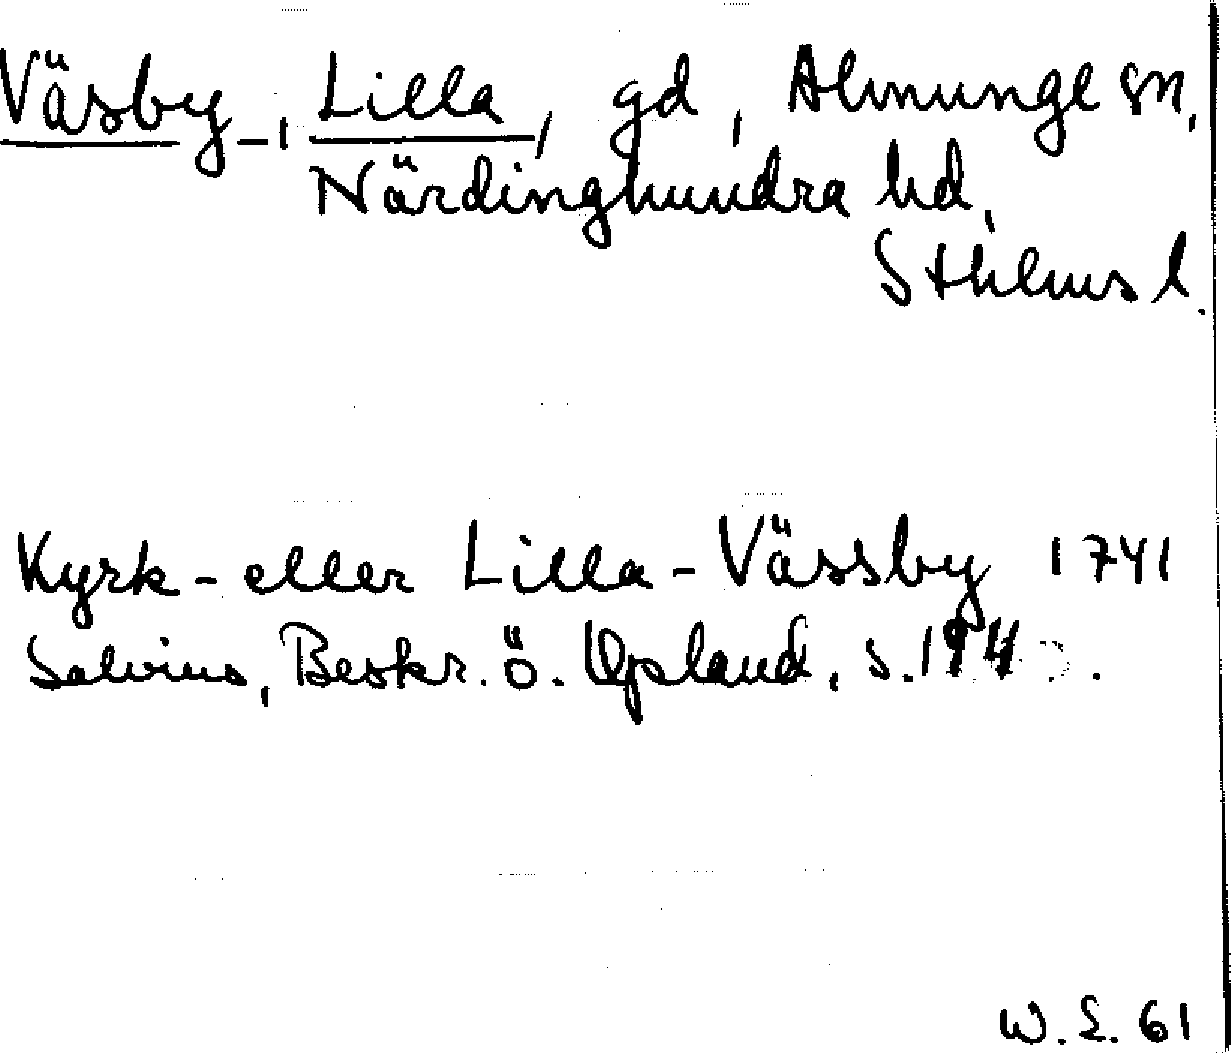 Väsby -, Lilla, gd, Almunge sn,
Närdinghundra hd,
Sthlms l.
Kyrk- eller Lilla-Vässby 1741
Salvius, Beskr. ö. Upland, s. 194.
W. E. 61